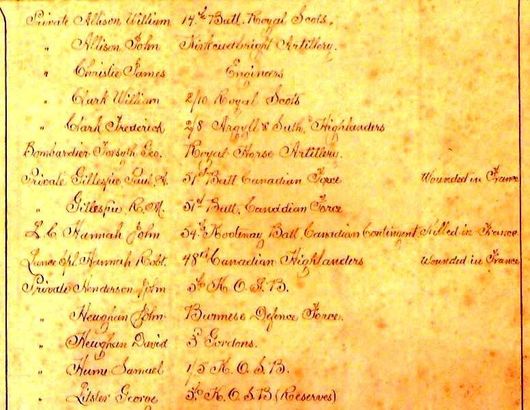 Private Allison William 14th Batt. Royal Scots.
" Allison John Kirkcudbright Artillery.
" Christie James Engineers
" Clark William 2/10 Royal Scots
" Clark Frederick 2/8 Argyll & Suth. Highlanders
Bombardier Forsyth Geo. Royal Horse Artillery.
Private Gillespie Paul A. 51st Batt Canadian Force Wounded in France
" Gillespie R. M. 51st Batt. Canadian Force
L. C. Hannah John 54th Kootenay Batt Canadian Contingent Killed in France.
Lance Cpl. Hannah Robt. 48th Canadian Highlanders Wounded in France
Private Henderson John K. O. S. B.
" Heughan John Burmese Defence Force.
" Heughan David Gordons.
" Hume Samuel 1/5 K. O. S. B.
" Lister George K. O. S. B (Reserves)